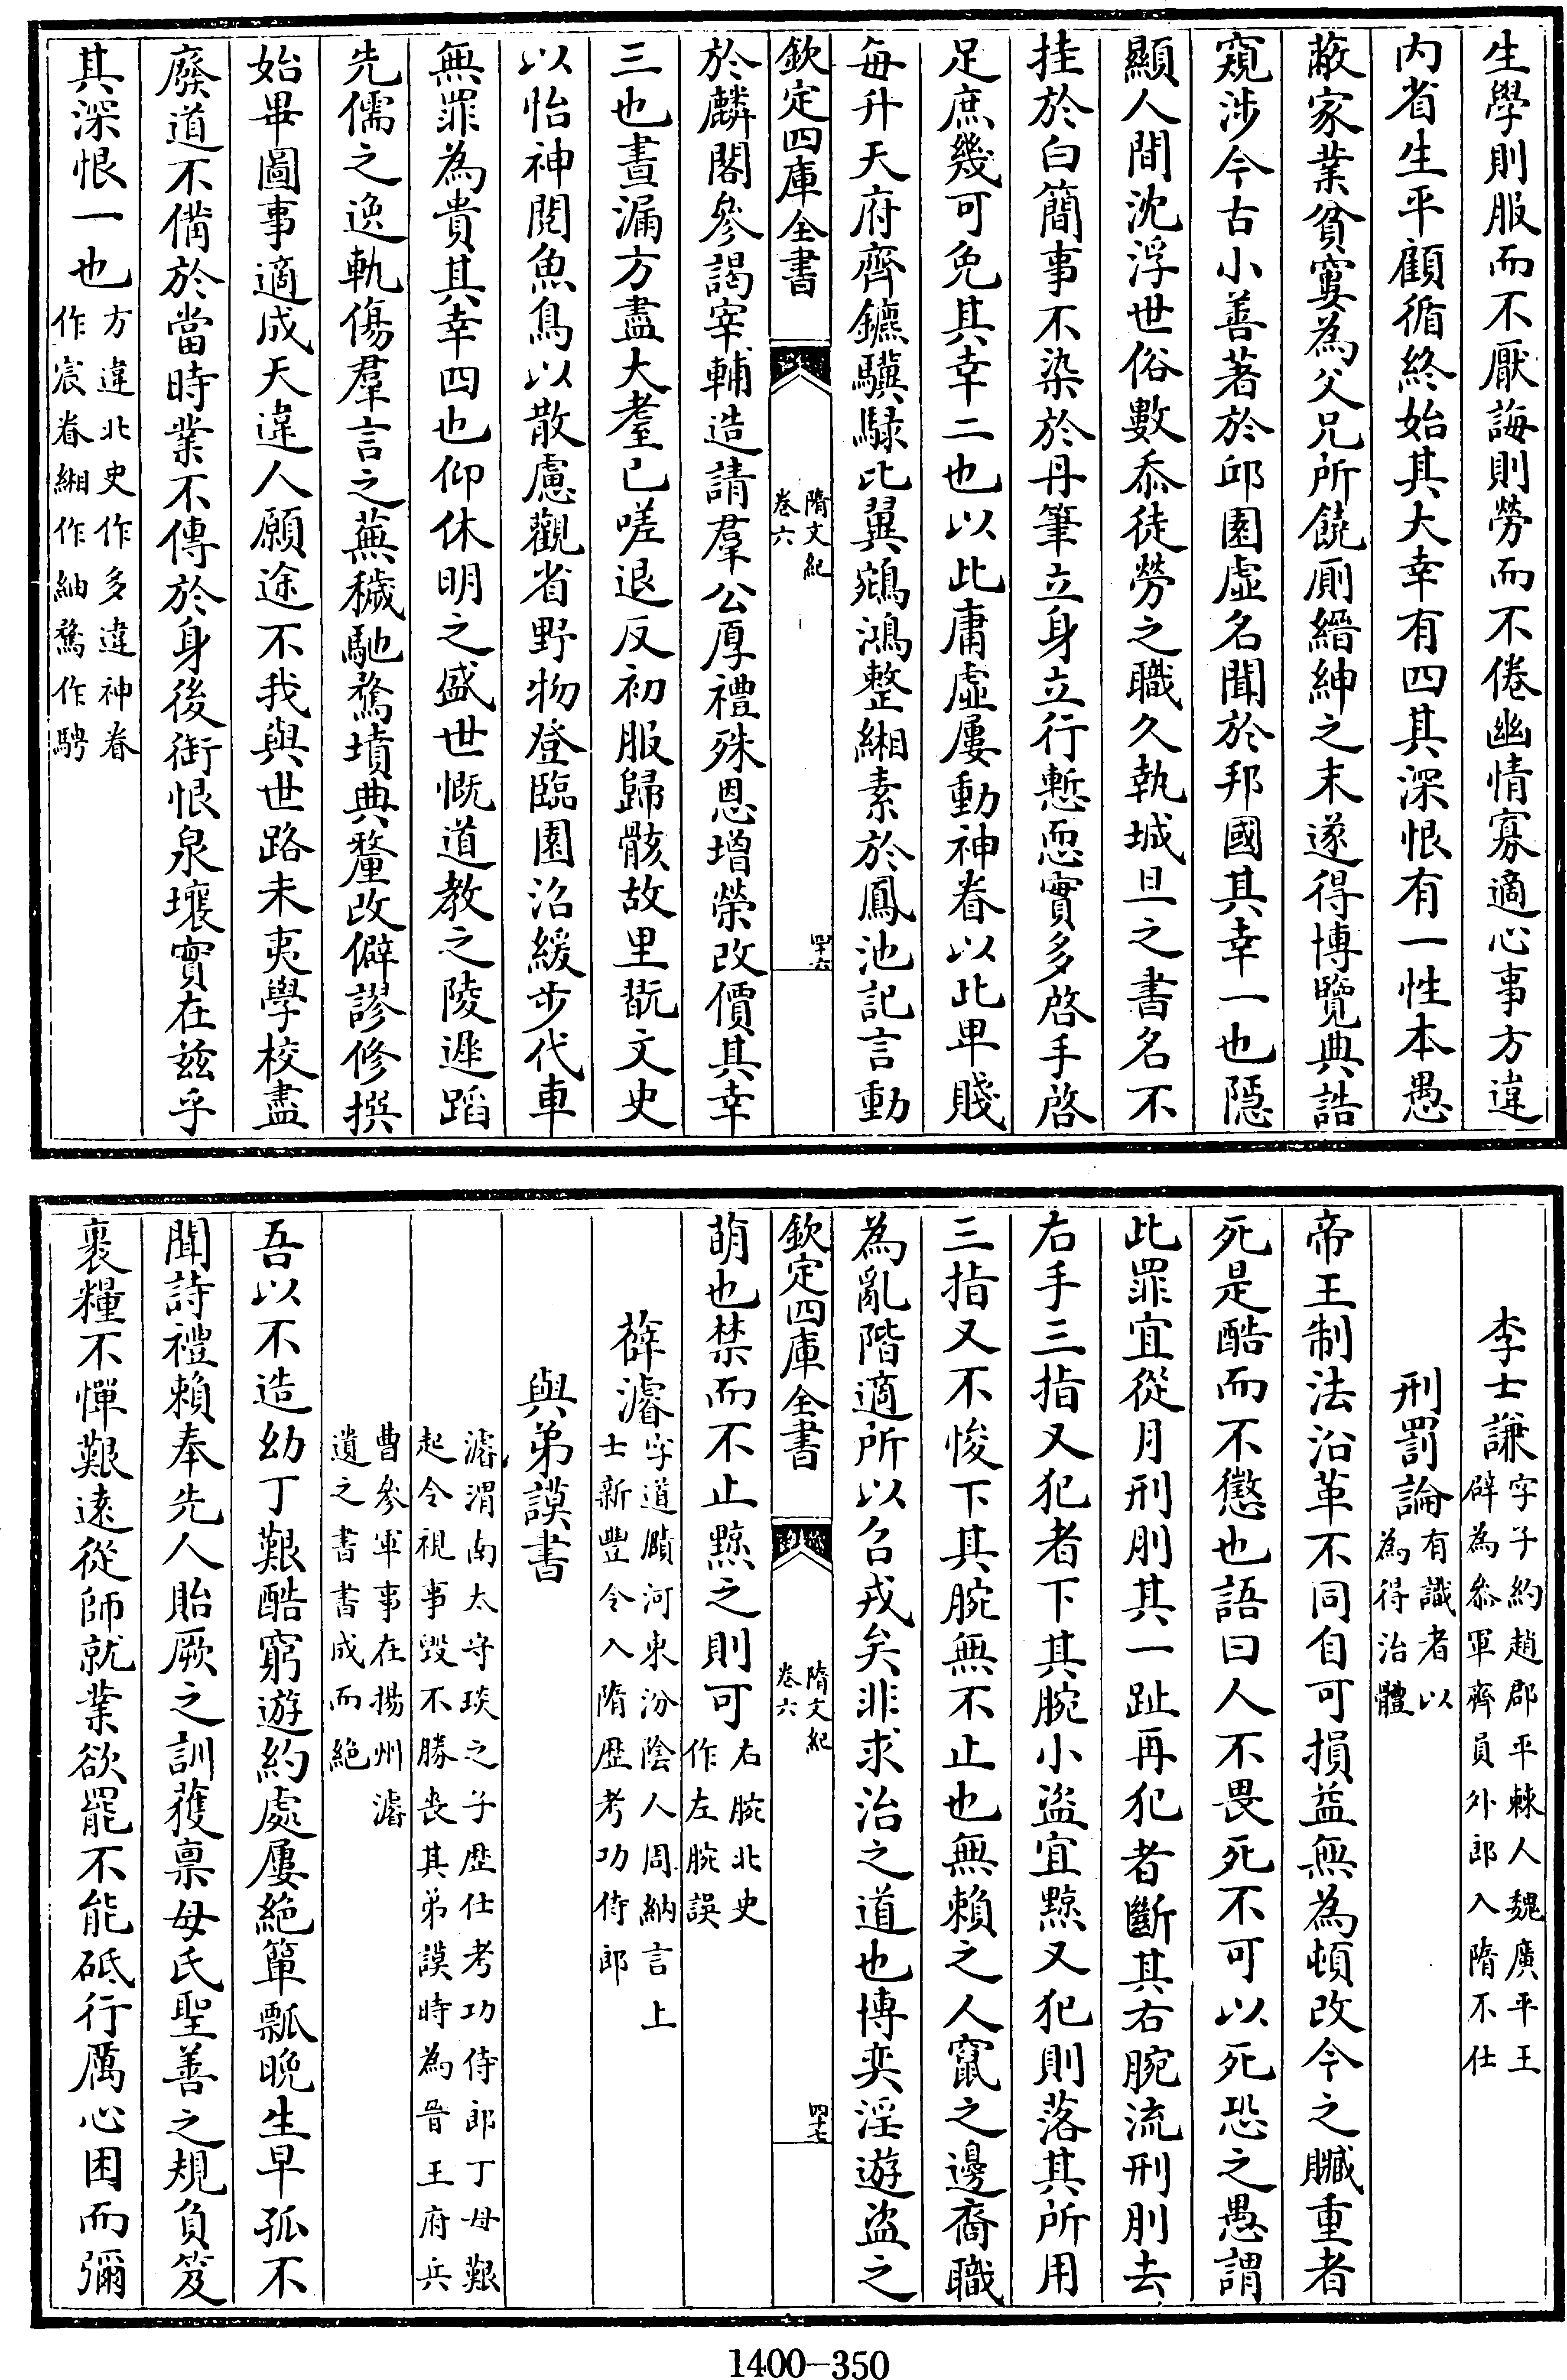 生學則服而不厭誨則勞而不倦幽情寡適心事方違
內省生平顧循終始其大幸有四其深恨有一性本愚
蔽家業貧窶為父兄所饒厠縉紳之末遂得博覽典誥
窺涉今古小善著於邱園虛名聞於邦國其幸一也隱
顯人間沈浮世俗數忝徒勞之職久執城旦之書名不
挂於白簡事不染於丹筆立身立行慙恧實多啓手啓
足庶幾可免其幸二也以此庸虛屢動神眷以此卑賤
每升天府齊鑣驥騄比翼鵷鴻整緗素於鳳池記言動
欽定四庫全書
隋文紀
卷六
四十六
於麟閣參謁宰輔造請羣公厚禮殊恩增榮改價其幸
三也晝漏方盡大耋已嗟退反初服歸骸故里翫文史
以怡神閱魚鳥以散慮觀省野物登臨園沼緩步代車
無罪為貴其幸四也仰休明之盛世慨道教之陵遲蹈
先儒之逸軌傷羣言之蕪穢馳騖墳典釐改僻謬修撰
始畢圖事適成天違人願途不我與世路未夷學校盡
廢道不備於當時業不傳於身後銜恨泉壤實在茲乎
其深恨一也方違北史作多違神眷
作宸眷緗作紬騖作騁
李士謙字子約趙郡平棘人魏廣平王
辟為參軍齊員外郎入隋不仕
刑罰論有識者以
為得治體
帝王制法沿革不同自可損益無為頓改今之贓重者
死是酷而不懲也語曰人不畏死不可以死恐之愚謂
此罪宜從月刑刖其一趾再犯者斷其右腕流刑刖去
右手三指又犯者下其腕小盜宜黥又犯則落其所用
三指又不悛下其腕無不止也無賴之人竄之邊裔職
為亂階適所以召戎矣非求治之道也博奕淫遊盜之
欽定四庫全書
隋文紀
卷六
四十七
萌也禁而不止黥之則可右腕北史
作左腕誤
薛濬字道賾河東汾陰人周納言上
士新豐令入隋歷考功侍郎
與弟謨書濬渭南太守琰之子歷仕考功侍郎丁母艱
起令視事毀不勝喪其弟謨時為晉王府兵
曹參軍事在揚州濬
遺之書書成而絕
吾以不造幼丁艱酷窮遊約處屢絕簞瓢晚生早孤不
聞詩禮賴奉先人貽厥之訓獲稟母氏聖善之規負笈
裹糧不憚艱遠從師就業欲罷不能砥行厲心困而彌
1400-350